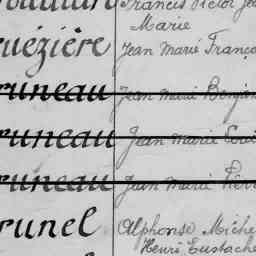 Francis Victor
Marie
uezière Jean Marie Franço
runeau Jean Marie Benjam
runeau Jean Marie Loui
runeau Jean Marie Pierr
runel Alphonse Miche
Henri Eustache